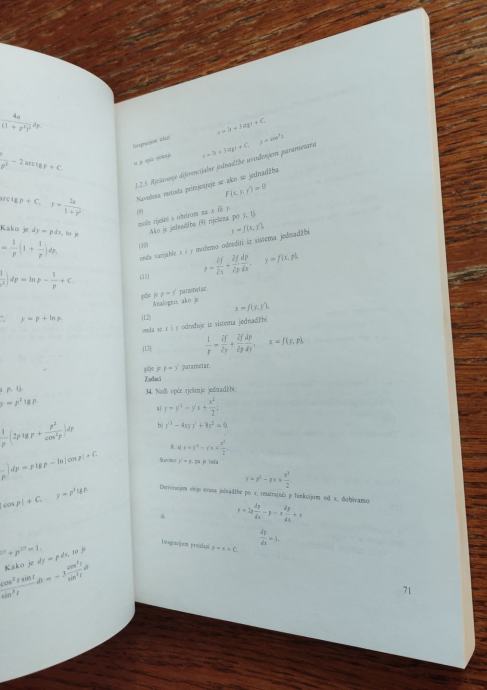 4a
(1 + p²)² dp.
− 2 arc tg p + C.
arc tg p + C, y = 2a / (1 + p²)
Kako je dy = p dx, to je
= 1/p (1 + 1/p) dp,
) dp = ln p − 1/p + C.
y = p + ln p.
a p, tj.
y = p² tg p.
1/p (2p tg p + p²/cos² p) dp
) dp = p tg p − ln |cos p| + C,
|cos p| + C, y = p² tg p.
+ p²ᐟ³ = 1.
Kako je dy = p dx, to je
cos² t sin t / sin³ t dt = − 3 cos² t / sin² t dt
Integracijom izlazi
x = 3t + 3 ctg t + C,
te je opće rješenje
x = 3t + 3 ctg t + C, y = cos³ t.
1.2.3. Rješavanje diferencijalne jednadžbe uvođenjem parametara
Navedena metoda primjenjuje se ako se jednadžba
(9) F(x, y, y') = 0
može riješiti s obzirom na x ili y.
Ako je jednadžba (9) riješena po y, tj.
(10) y = f(x, y'),
onda varijable x i y možemo odrediti iz sistema jednadžbi
(11) p = ∂f/∂x + ∂f/∂p dp/dx, y = f(x, p),
gdje je p = y' parametar.
Analogno, ako je
(12) x = f(y, y'),
onda se x i y određuje iz sistema jednadžbi
(13) 1/p = ∂f/∂y + ∂f/∂p dp/dy, x = f(y, p),
gdje je p = y' parametar.
Zadaci
34. Nađi opće rješenje jednadžbi:
a) y = y'² − y'x + x²/2;
b) y'³ − 4xy y' + 8y² = 0.
R. a) y = y'² − y'x + x²/2.
Stavimo y' = p, pa je tada
y = p² − px + x²/2
Deriviranjem obiju strana jednadžbe po x, smatrajući p funkcijom od x, dobivamo
p = 2p dp/dx − p − x dp/dx + x
ili
dp/dx = 1.
Integracijom proizlazi p = x + C.
71